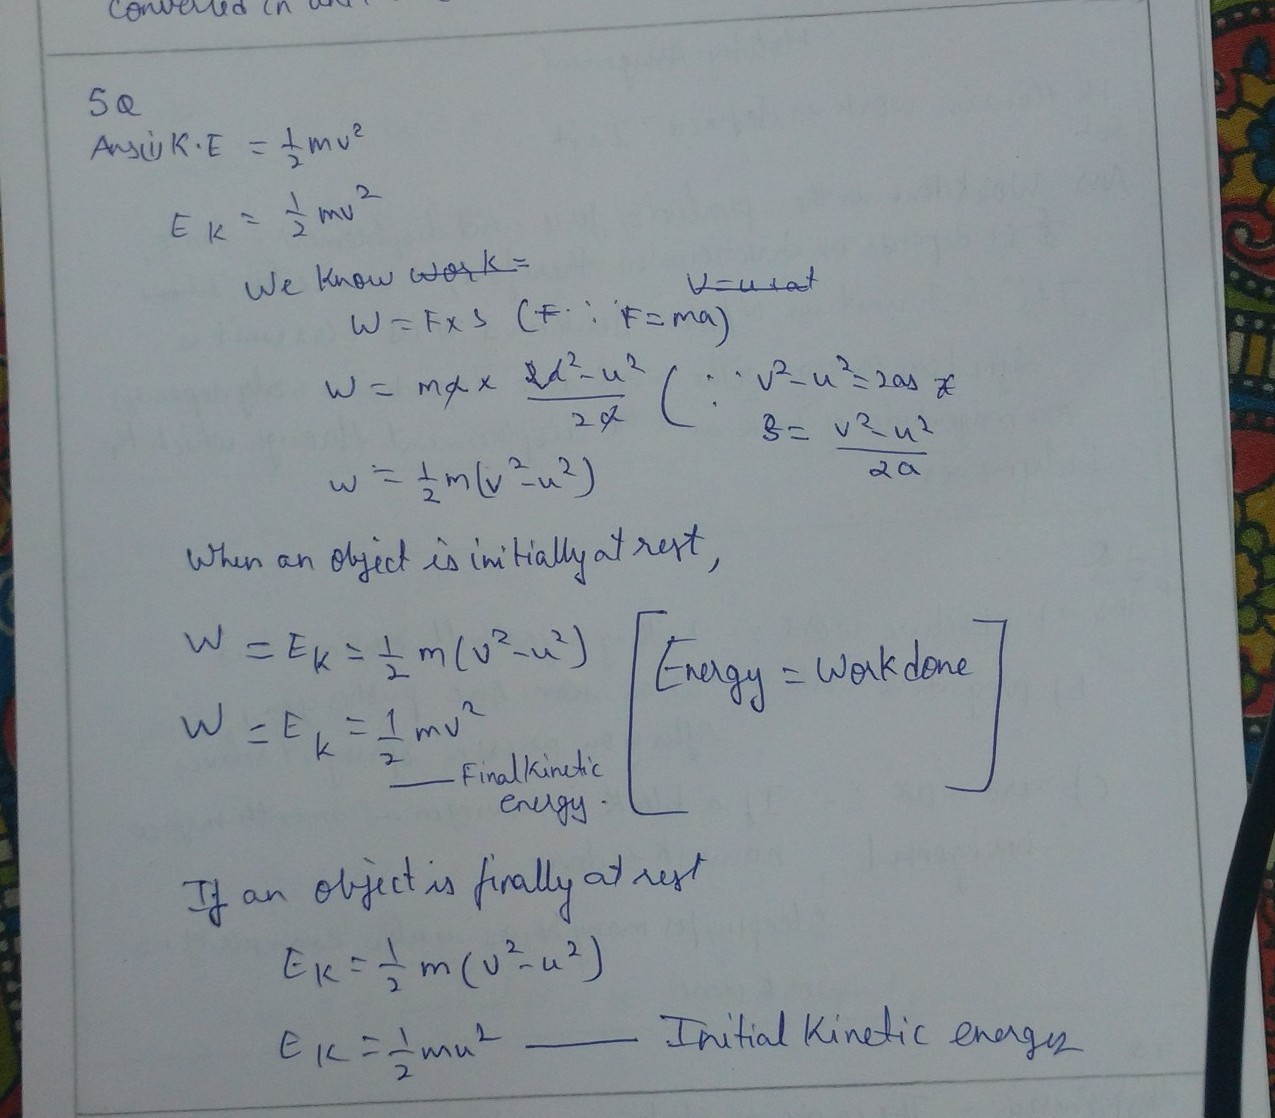 Converted in
5Q
Ans:i) K.E = 1/2 mv²
E K = 1/2 mv²
We know work =
v=u+at
W = F x s (F ∵ F = ma)
W = ma x 2d²-u²/2a (∵ v²-u²=2as
s = v²-u²/2a
w = 1/2 m(v²-u²)
When an object is initially at rest,
W = EK = 1/2 m(v²-u²)
[Energy = Work done]
W = EK = 1/2 mv²
— Final Kinetic
energy.
If an object is finally at rest
EK = 1/2 m(v²-u²)
EK = 1/2 mu² — Initial Kinetic energy